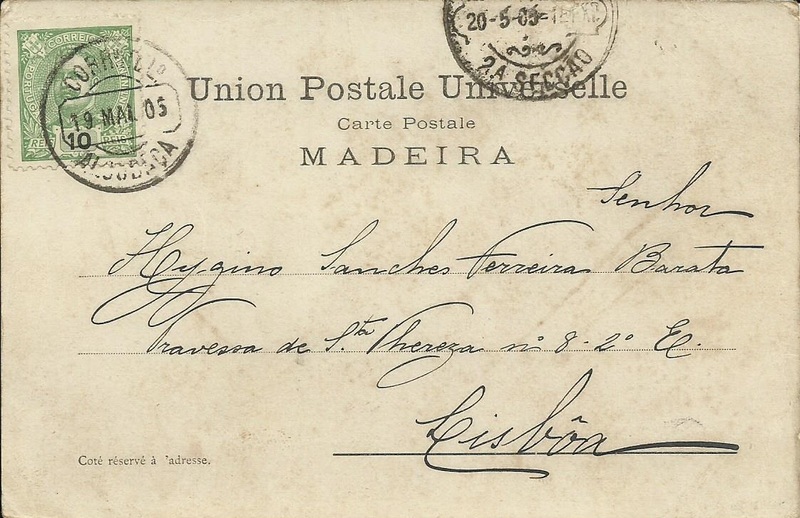 CORREIO
19 MAI 05
10
ALCOBAÇA
20-5-05
2A SECÇÃO
Union Postale Universelle
Carte Postale
MADEIRA
Senhor
Hygino Sanches Ferreira Barata
Travessa de S.ta Thereza nº 8-2º E.
Lisbôa
Coté réservé à l'adresse.